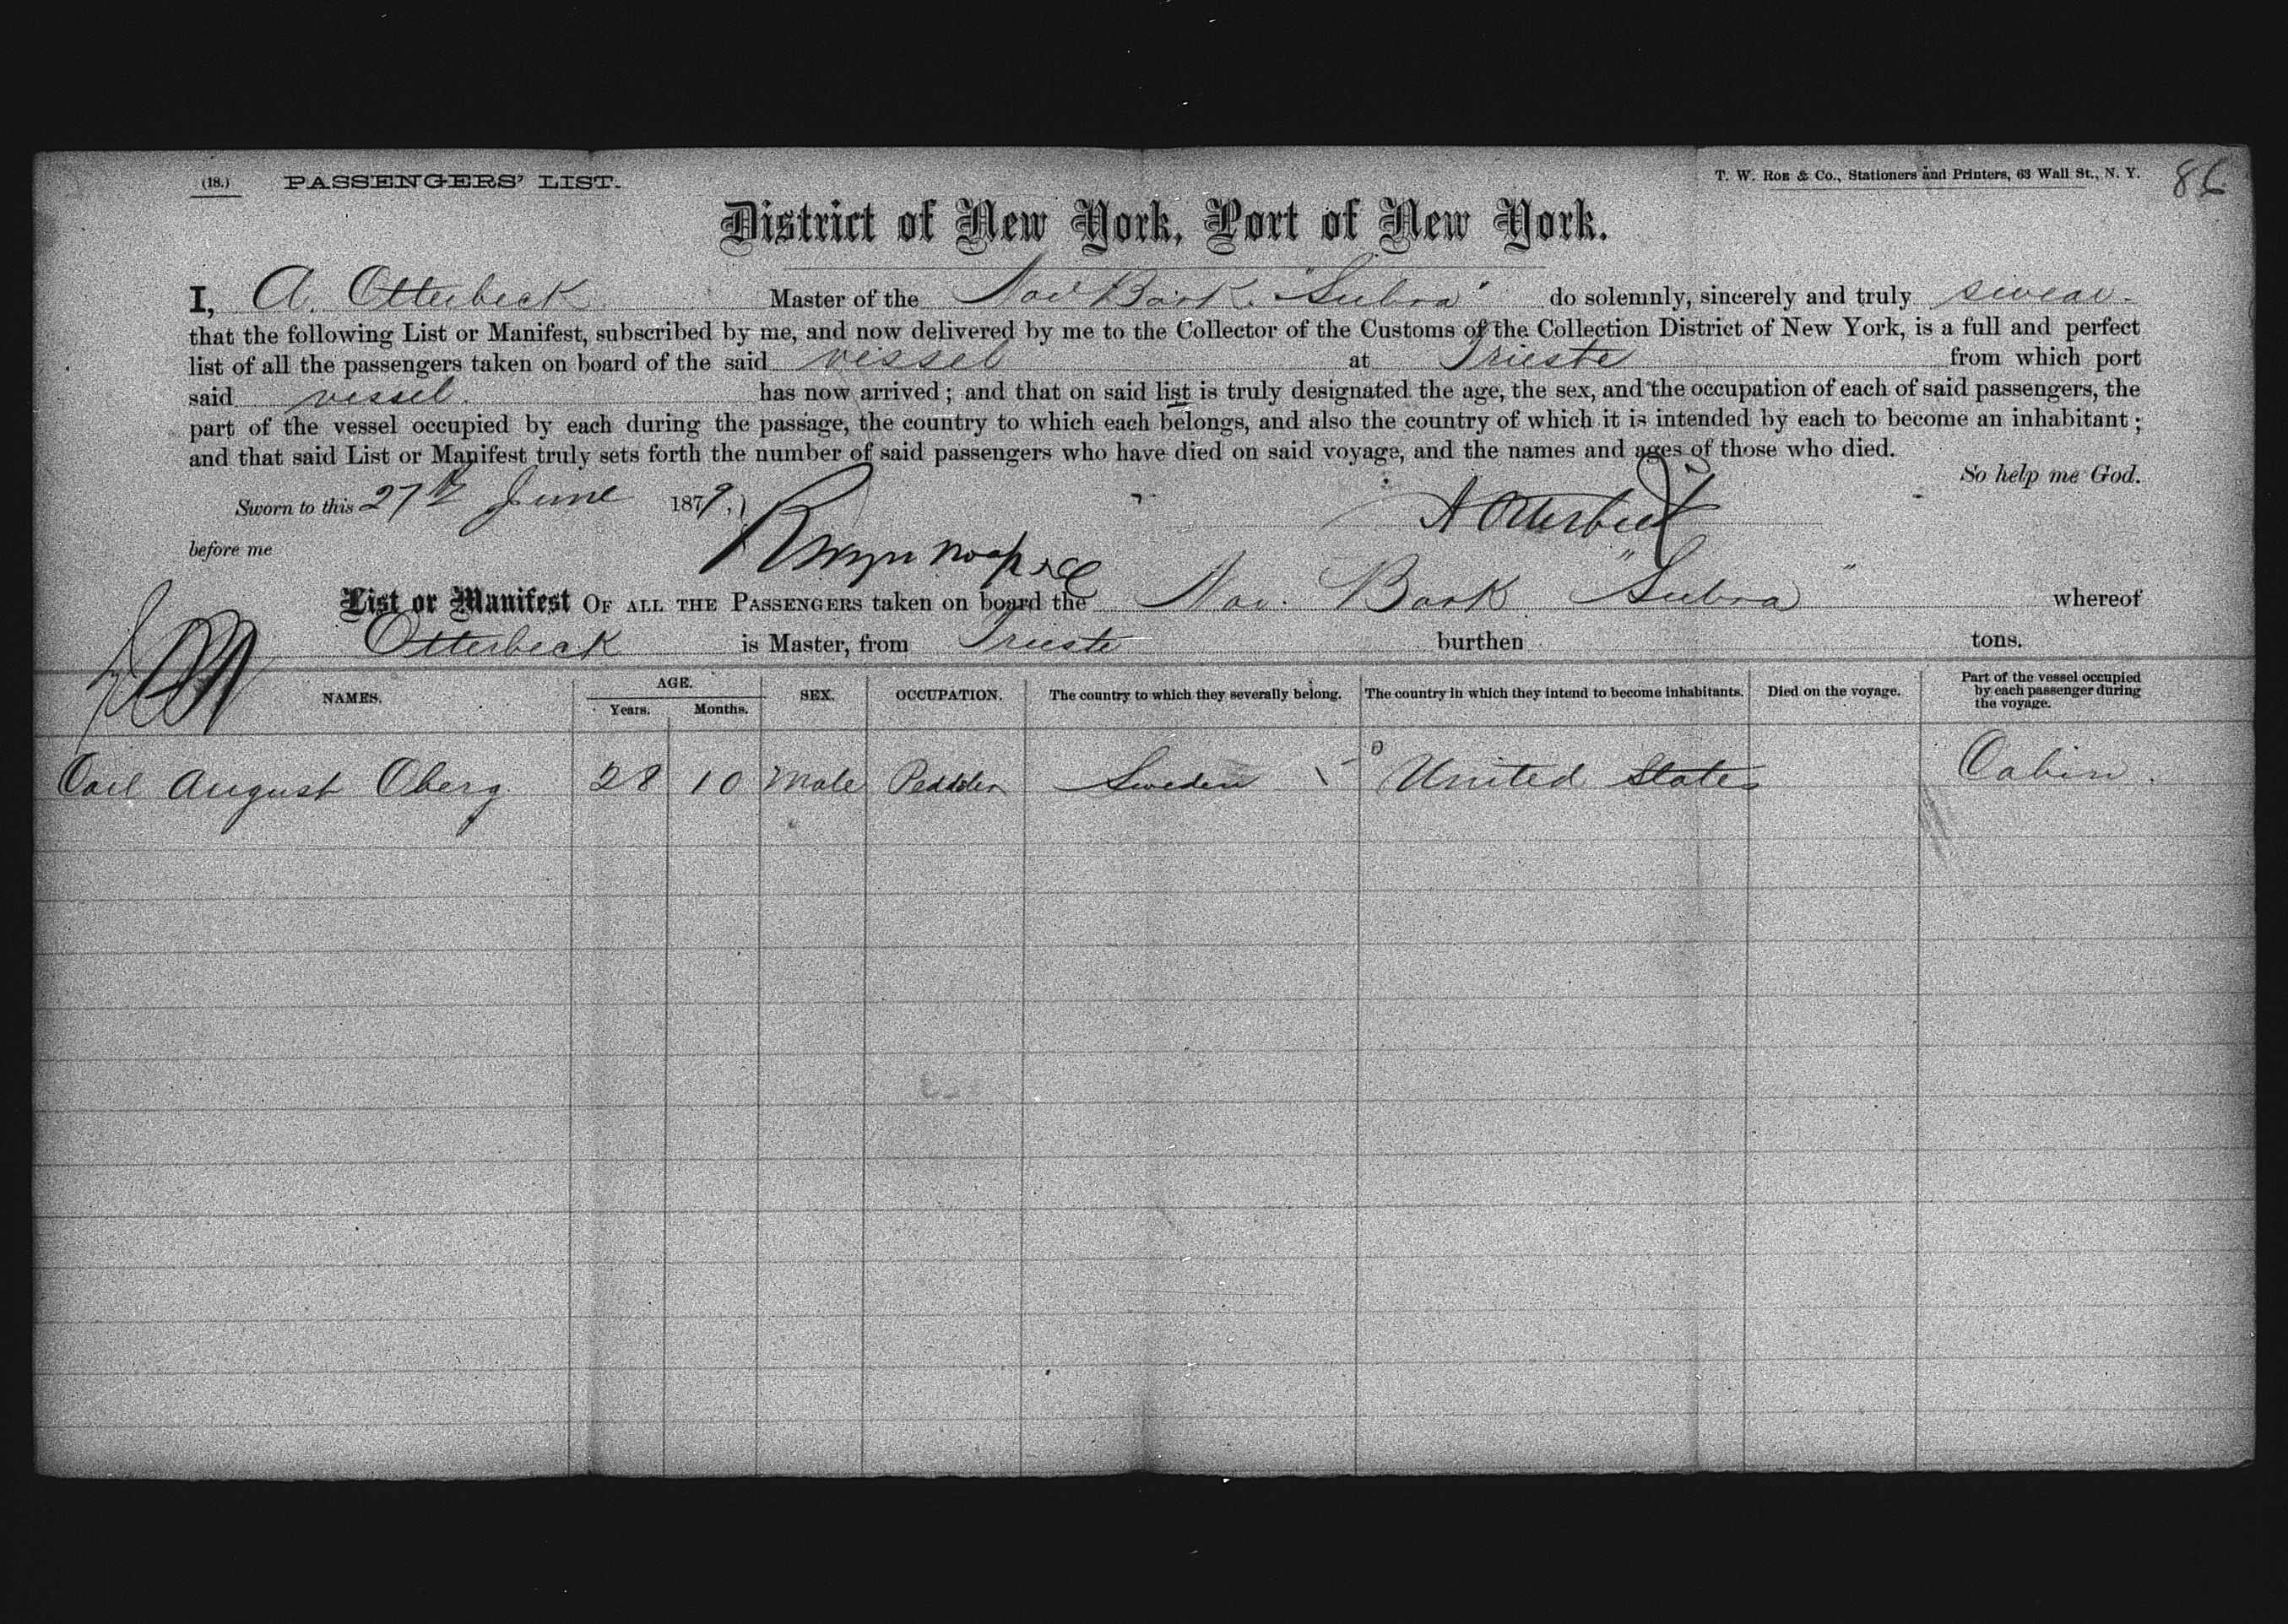 (18.) PASSENGERS' LIST. T. W. ROE & CO., Stationers and Printers, 63 Wall St., N. Y. 86
District of New York, Port of New York.
I, A. Otterbeck Master of the Nor Bark "Subra" do solemnly, sincerely and truly swear
that the following List or Manifest, subscribed by me, and now delivered by me to the Collector of the Customs of the Collection District of New York, is a full and perfect
list of all the passengers taken on board of the said vessel at Trieste from which port
said vessel has now arrived; and that on said list is truly designated the age, the sex, and the occupation of each of said passengers, the
part of the vessel occupied by each during the passage, the country to which each belongs, and also the country of which it is intended by each to become an inhabitant;
and that said List or Manifest truly sets forth the number of said passengers who have died on said voyage, and the names and ages of those who died.
So help me God.
Sworn to this 27th June 1879, A Otterbeck
before me
List or Manifest OF ALL THE PASSENGERS taken on board the Nor. Bark "Subra" whereof
Otterbeck is Master, from Trieste burthen tons.
NAMES. AGE. Years. Months. SEX. OCCUPATION. The country to which they severally belong. The country in which they intend to become inhabitants. Died on the voyage. Part of the vessel occupied by each passenger during the voyage.
Carl August Oberg 28 10 Male Peddler Sweden United States Cabin.